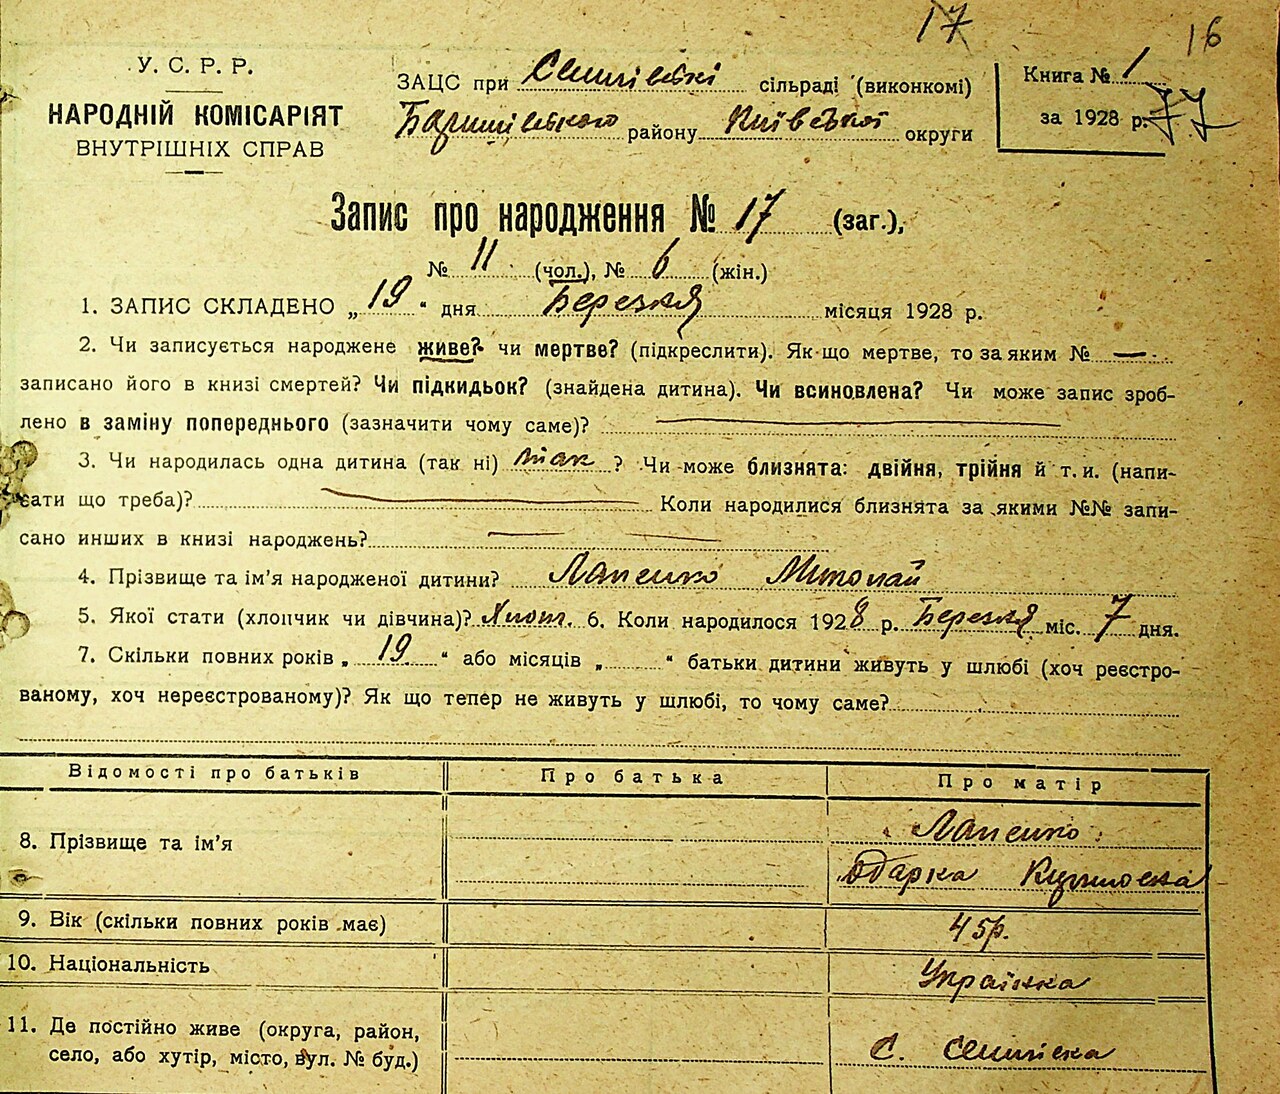 17
16
У. С. Р. Р.
НАРОДНІЙ КОМІСАРІЯТ
ВНУТРІШНІХ СПРАВ
ЗАЦС при сільраді (виконкомі)
району Київської округи
Книга № 1
за 1928 р. 77
Запис про народження № 17 (заг.),
№ 11 (чол.), № 6 (жін.)
1. ЗАПИС СКЛАДЕНО „ 19 “ дня Березня місяця 1928 р.
2. Чи записується народжене живе? чи мертве? (підкреслити). Як що мертве, то за яким № —
записано його в книзі смертей? Чи підкидьок? (знайдена дитина). Чи всиновлена? Чи може запис зроб-
лено в заміну попереднього (зазначити чому саме)?
3. Чи народилась одна дитина (так ні) так ? Чи може близнята: двійня, трійня й т. и. (напи-
сати що треба)? Коли народилися близнята за якими №№ запи-
сано инших в книзі народжень?
4. Прізвище та ім’я народженої дитини? Лапенко Миколай
5. Якої стати (хлопчик чи дівчина)? Хлоп. 6. Коли народилося 1928 р. Березня міс. 7 дня.
7. Скільки повних років „ 19 “ або місяців „ “ батьки дитини живуть у шлюбі (хоч реєстро-
ваному, хоч нереєстрованому)? Як що тепер не живуть у шлюбі, то чому саме?
Відомості про батьків Про батька Про матір
8. Прізвище та ім’я Лапенко
Одарка
9. Вік (скільки повних років має) 45р.
10. Національність Українка
11. Де постійно живе (округа, район,
село, або хутір, місто, вул. № буд.) С.